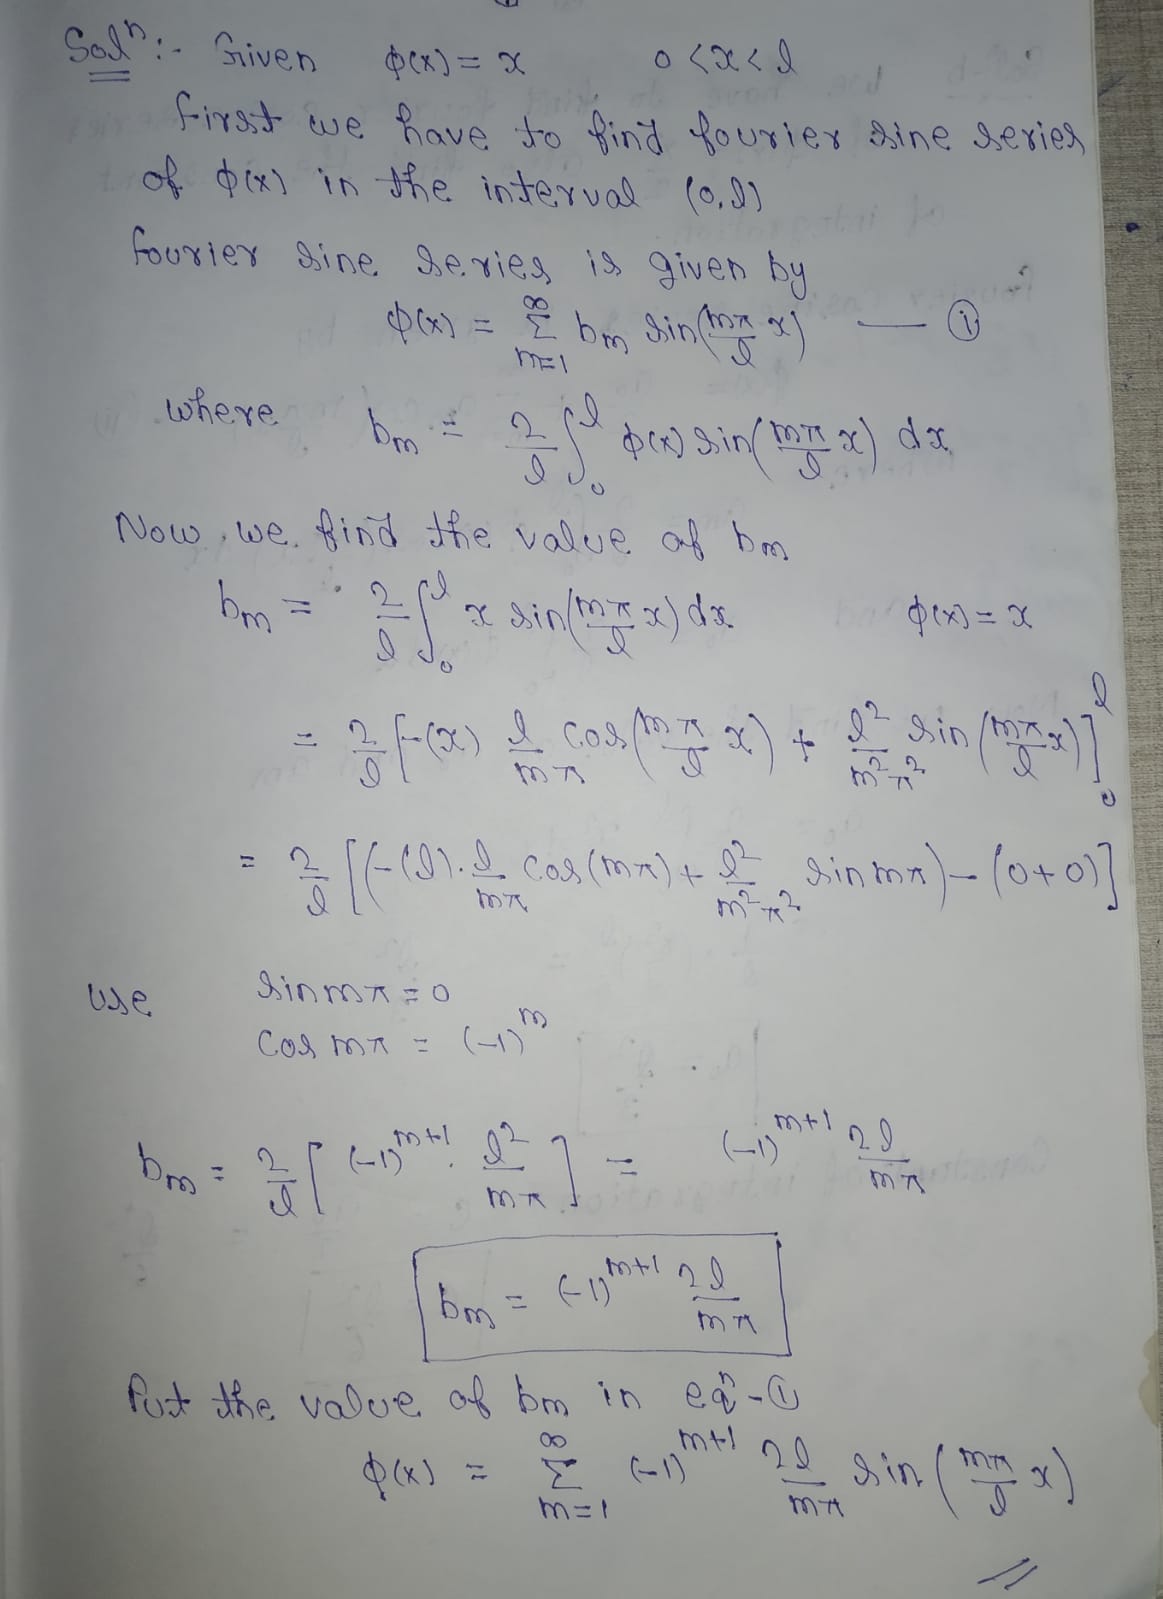 Solⁿ:- Given ϕ(x) = x 0<x<l
first we have to find fourier sine series
of ϕ(x) in the interval (0,l)
fourier sine series is given by
ϕ(x) = ∑_{m=1}^{∞} b_m sin(mπ/l x) — ①
where b_m = 2/l ∫_0^l ϕ(x) sin(mπ/l x) dx
Now we find the value of b_m
b_m = 2/l ∫_0^l x sin(mπ/l x) dx ϕ(x) = x
= 2/l [-(x) l/mπ cos(mπ/l x) + l²/m²π² sin(mπ/l x)]_0^l
= 2/l [(-(l)·l/mπ cos(mπ) + l²/m²π² sin mπ) - (0+0)]
use sin mπ = 0
cos mπ = (-1)^m
b_m = 2/l [(-1)^{m+1} · l²/mπ] = (-1)^{m+1} 2l/mπ
b_m = (-1)^{m+1} 2l/mπ
Put the value of b_m in eqⁿ-①
ϕ(x) = ∑_{m=1}^{∞} (-1)^{m+1} 2l/mπ sin(mπ/l x)
//